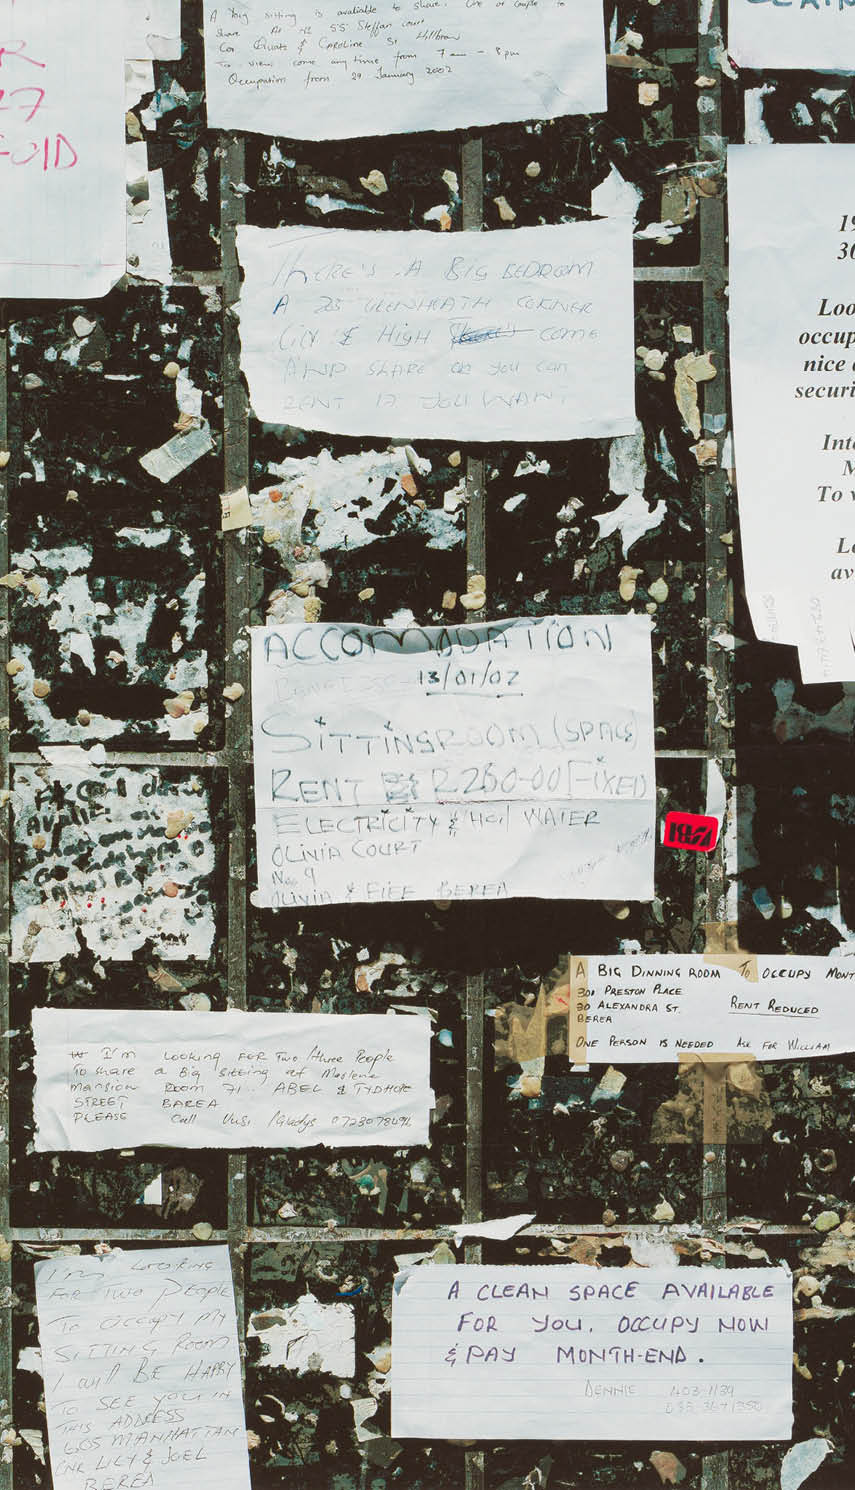 R
27
A big sitting is avaliable to share. One or couple to
share At 55 Steffan court
Cor Quartz & Caroline St Hillbrow
To view come anytime from 7am - 8pm
Occupation from 29 January 2002
19
30
Loo
occup
nice
securi
Inte
M
To v
Lo
av
THERE'S A BIG BEDROOM
A 203 GLENHEATH CORNER
LILY & HIGH COME
AND SHARE OR YOU CAN
RENT IF YOU WANT
ACCOMODATION
13/01/02
SITTINGROOM (SPACE)
RENT R260-00 [FIXED]
ELECTRICITY & HOT WATER
OLIVIA COURT
No 9
OLIVIA & FIFE BEREA
A BIG DINNING ROOM TO OCCUPY MONT
301 PRESTON PLACE
30 ALEXANDRA ST. RENT REDUCED
BEREA
ONE PERSON IS NEEDED ASK FOR WILLIAM
I'm Looking FOR Two/three People
To share a Big sitting at Moslene
mansion Room 71.. ABEL & TYDHOPE
STREET BAREA
PLEASE Call Vusi /Gladys 0723078496
I'm LOOKING
FOR TWO PEOPLE
To OCCUPY MY
SITTING ROOM
I will BE HAPPY
TO SEE YOU IN
THIS ADDRESS
605 MANHATTAN
CNR LILY & JOEL
BEREA
A CLEAN SPACE AVAILABLE
FOR YOU. OCCUPY NOW
& PAY MONTH-END.
DENNIE 403-1139